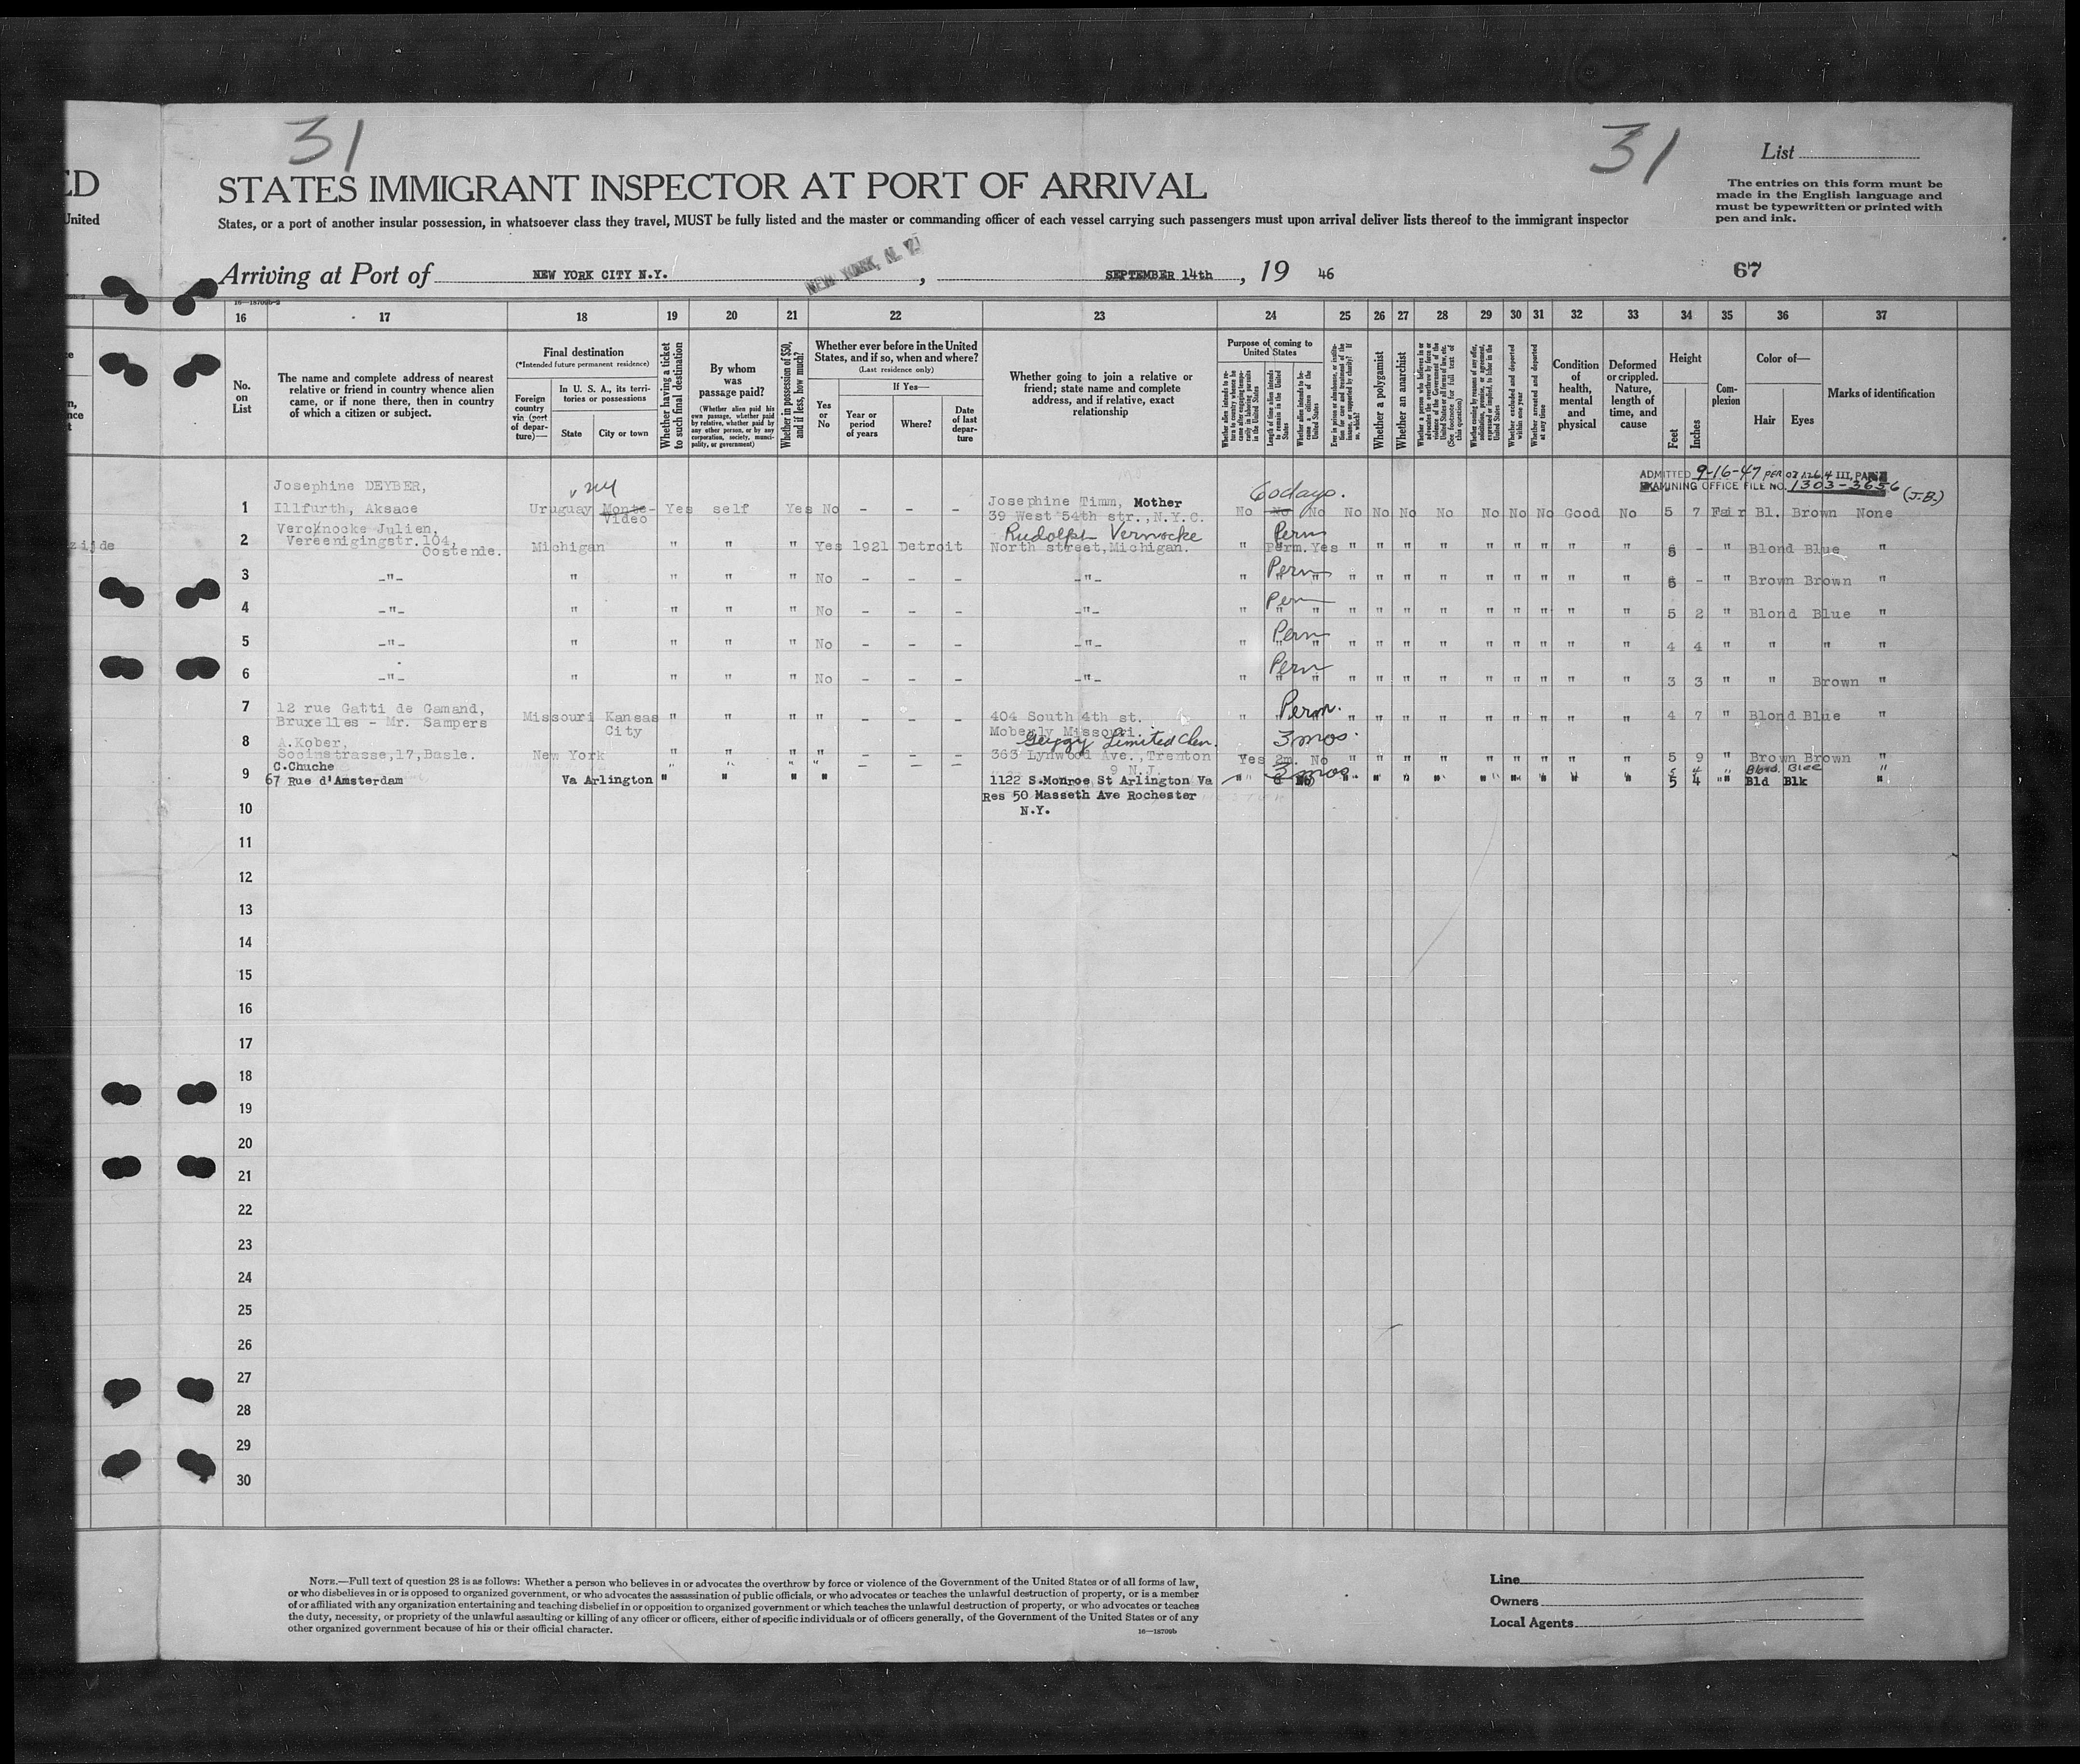 31
31
List
ED
STATES IMMIGRANT INSPECTOR AT PORT OF ARRIVAL
The entries on this form must be
made in the English language and
must be typewritten or printed with
pen and ink.
United
States, or a port of another insular possession, in whatsoever class they travel, MUST be fully listed and the master or commanding officer of each vessel carrying such passengers must upon arrival deliver lists thereof to the immigrant inspector
Arriving at Port of NEW YORK CITY N.Y. NEW YORK, N. Y. , SEPTEMBER 14th, 19 46
67
16—18709b-2
16 17 18 19 20 21 22 23 24 25 26 27 28 29 30 31 32 33 34 35 36 37
No.
on
List
The name and complete address of nearest
relative or friend in country whence alien
came, or if none there, then in country
of which a citizen or subject.
Final destination
(*Intended future permanent residence)
Foreign
country
via (port
of depar-
ture)—
In U. S. A., its terri-
tories or possessions
State
City or town
Whether having a ticket
to such final destination
By whom
was
passage paid?
(Whether alien paid his
own passage, whether paid
by relative, whether paid by
any other person, or by any
corporation, society, munici-
pality, or government)
Whether in possession of $50,
and if less, how much?
Whether ever before in the United
States, and if so, when and where?
(Last residence only)
Yes
or
No
If Yes—
Year or
period
of years
Where?
Date
of last
depar-
ture
Whether going to join a relative or
friend; state name and complete
address, and if relative, exact
relationship
Purpose of coming to
United States
Whether alien intends to re-
turn to country whence he
came after engaging tempo-
rarily in laboring pursuits
in the United States
Length of time alien intends
to remain in the United
States
Whether alien intends to be-
come a citizen of the
United States
Whether a polygamist
Whether an anarchist
Whether excluded and deported
within one year
Whether arrested and deported
at any time
Condition
of
health,
mental
and
physical
Deformed
or crippled.
Nature,
length of
time, and
cause
Height
Feet
Inches
Com-
plexion
Color of—
Hair
Eyes
Marks of identification
ADMITTED 9-16-47 PER
EXAMINING OFFICE FILE NO. 1303-3656 (J.B.)
Josephine DEYBER,
1 Illfurth, Aksace Uruguay Monte-Video Yes self Yes No - - - Josephine Timm, Mother
39 West 54th str., N.Y.C. 60 days. No No No No No No No No No No Good No 5 7 Fair Bl. Brown None
Vercknocke Julien,
2 Vereenigingstr.104,
Oostende. Michigan " " " Yes 1921 Detroit Rudolph Vernocke
North street,Michigan. " Perm Perm. Yes " " " " " " " " " 5 - " Blond Blue "
zijde
3 -"- " " " " No - - - -"- " Perm " " " " " " " " " " " 5 - " Brown Brown "
4 -"- " " " " No - - - -"- " Perm " " " " " " " " " " " 5 2 " Blond Blue "
5 -"- " " " " No - - - -"- " Perm " " " " " " " " " " " 4 4 " " " "
6 -"- " " " " No - - - -"- " Perm " " " " " " " " " " " 3 3 " " Brown "
7 12 rue Gatti de Gamand,
Bruxelles - Mr. Sampers Missouri Kansas
City " " " " - - - 404 South 4th st.
Moberly Missouri. " Perm. " " " " " " " " " " 4 7 " Blond Blue "
8 A.Kober,
Socinstrasse,17,Basle. New York " " " " - - - Geigy Limited Chem.
363 Lynwood Ave.,Trenton
9 N.J. Yes 3 mos. No " " " " " " " " " 5 9 " Brown Brown "
C.Chuche
9 67 Rue d'Amsterdam Va Arlington " " " " 1122 S.Monroe St Arlington Va
Res 50 Masseth Ave Rochester
N.Y. " 3 mos No " " " " " " " " " 5 4 " Bld Blk "
10
11
12
13
14
15
16
17
18
19
20
21
22
23
24
25
26
27
28
29
30
NOTE.—Full text of question 28 is as follows: Whether a person who believes in or advocates the overthrow by force or violence of the Government of the United States or of all forms of law,
or who disbelieves in or is opposed to organized government, or who advocates the assassination of public officials, or who advocates or teaches the unlawful destruction of property, or is a member
of or affiliated with any organization entertaining and teaching disbelief in or opposition to organized government or which teaches the unlawful destruction of property, or who advocates or teaches
the duty, necessity, or propriety of the unlawful assaulting or killing of any officer or officers, either of specific individuals or of officers generally, of the Government of the United States or of any
other organized government because of his or their official character.
16—18709b
Line
Owners
Local Agents